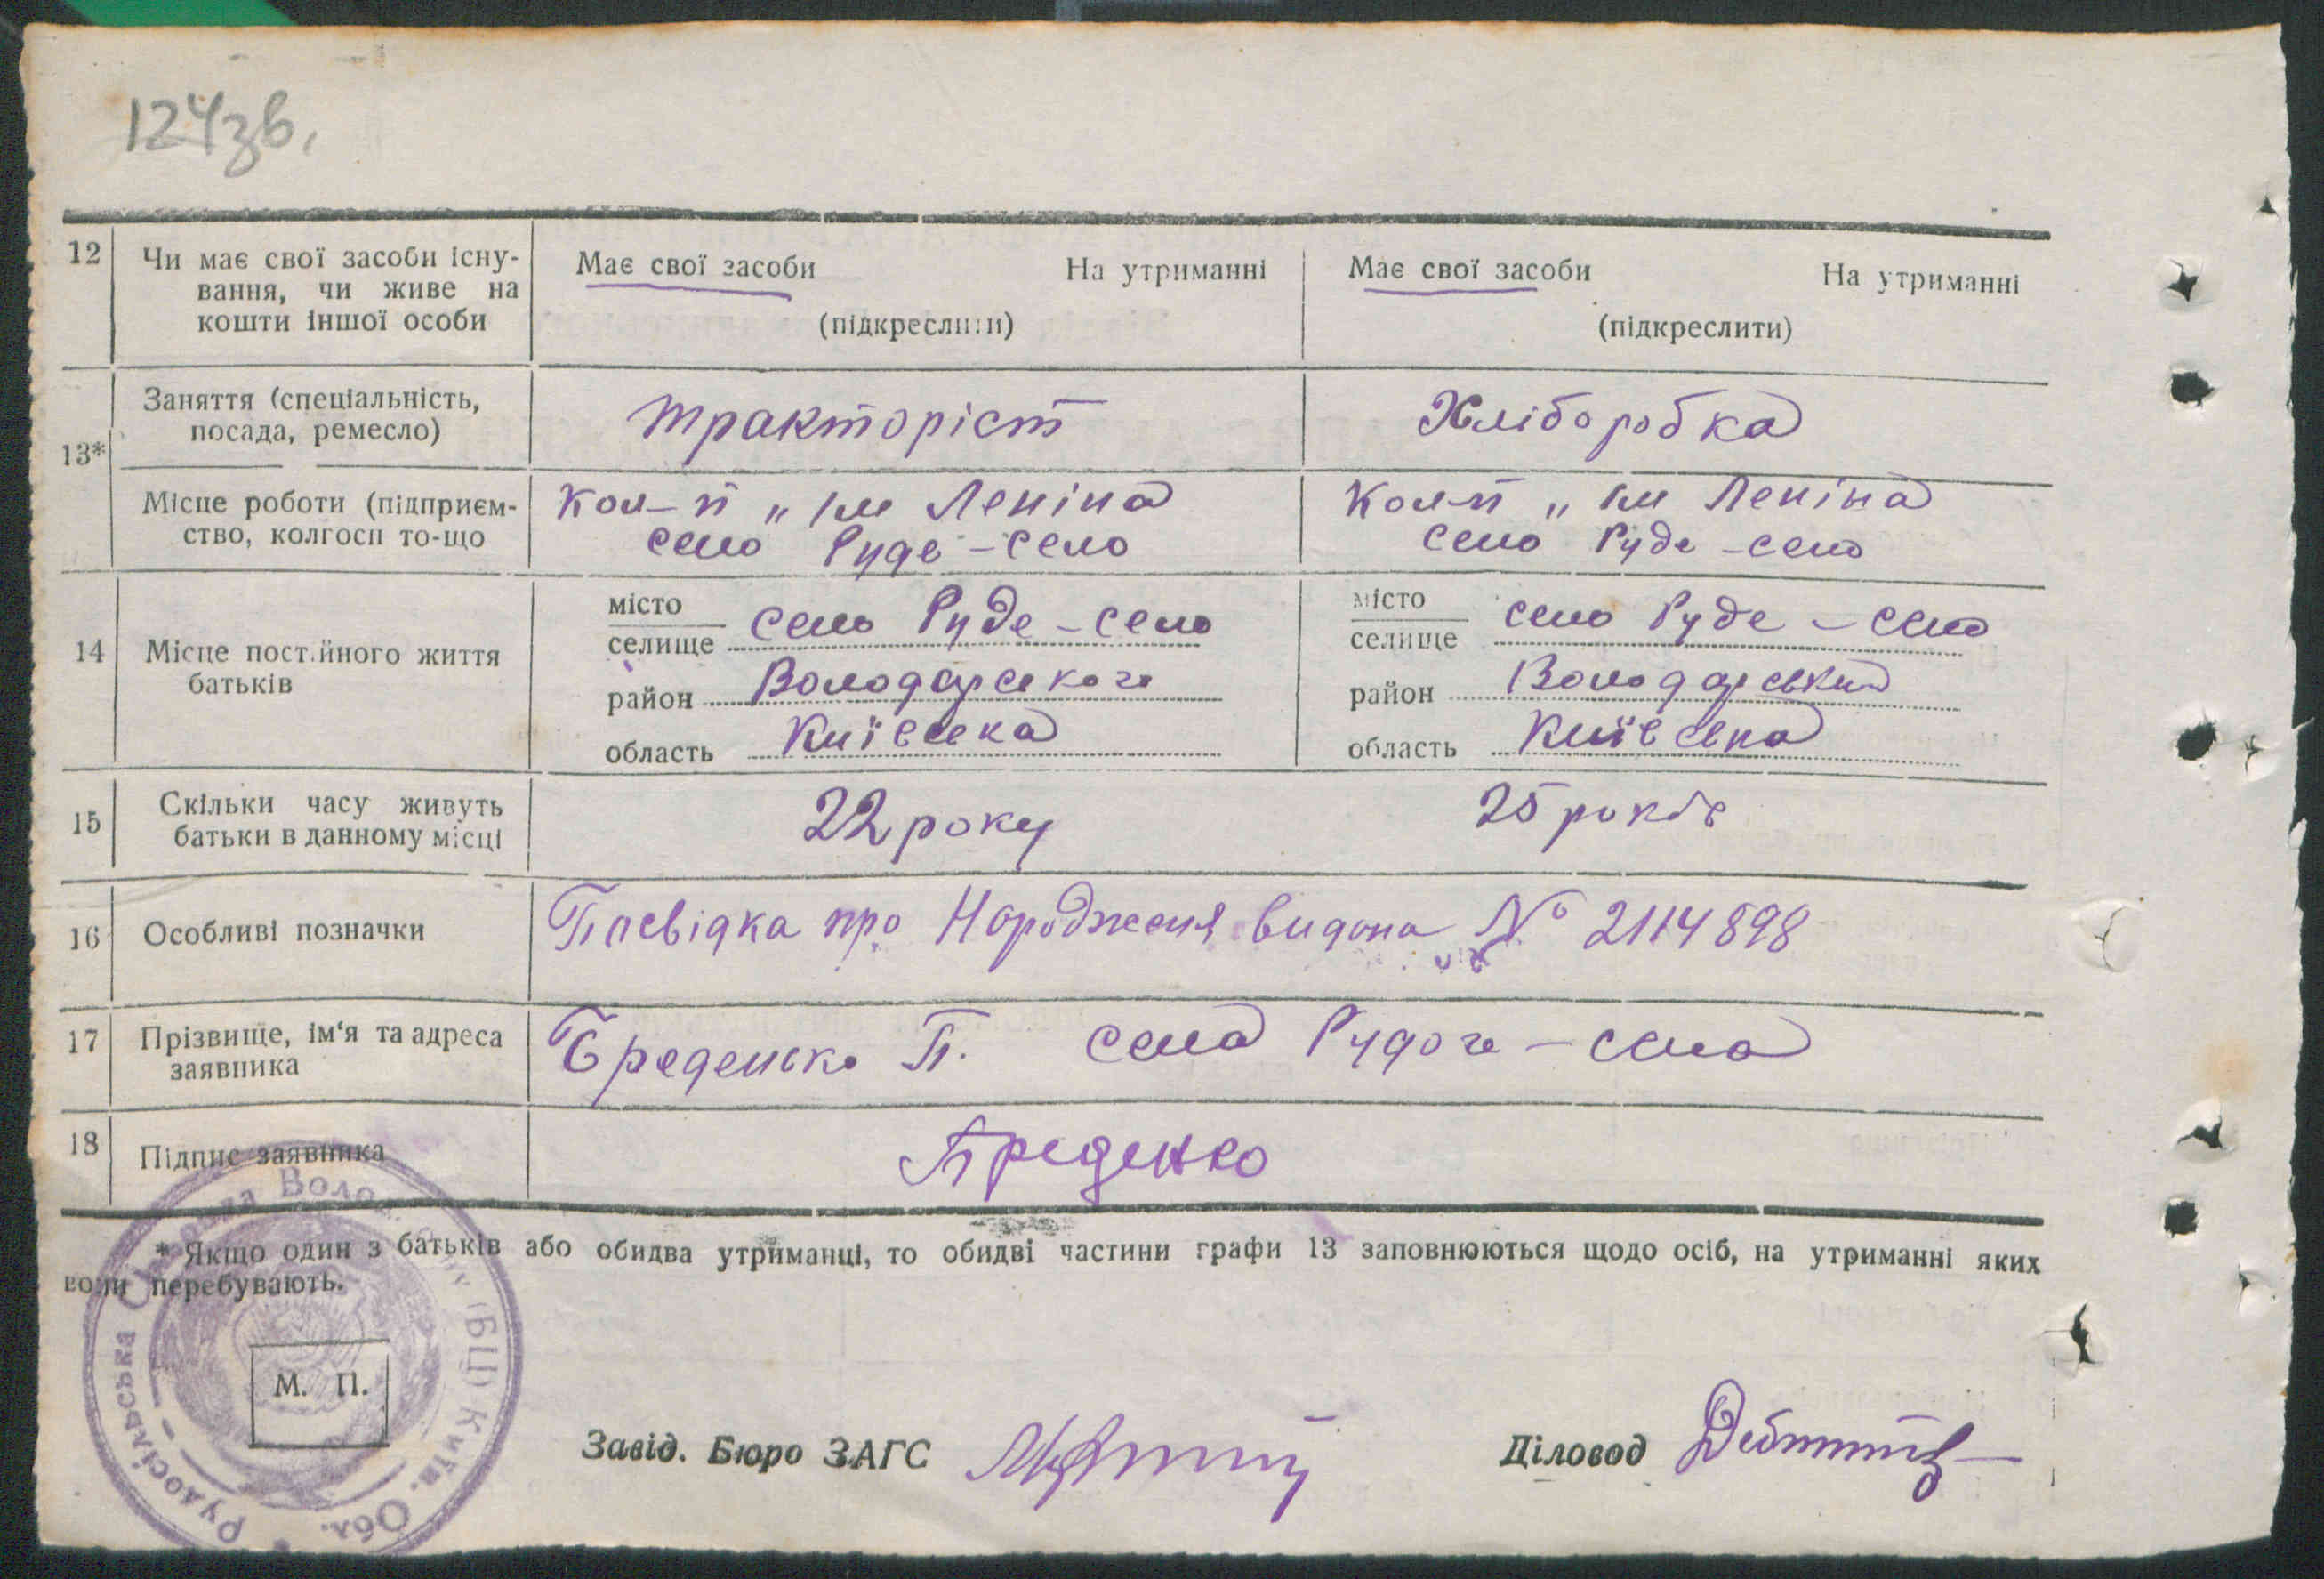 124зв.
12 Чи має свої засоби існу-
вання, чи живе на
кошти іншої особи
Має свої засоби На утриманні
(підкреслити)
Має свої засоби На утриманні
(підкреслити)
13*
Заняття (спеціальність,
посада, ремесло)
тракторіст
Хліборобка
Місце роботи (підприєм-
ство, колгосп то-що
Кол-п „ ім Леніна
село Руде-село
Кол-п „ ім Леніна
село Руде-село
14 Місце постійного життя
батьків
місто
селище село Руде-село
район Володарського
область Київська
місто
селище село Руде-село
район Володарський
область Київська
15 Скільки часу живуть
батьки в данному місці
22 року
25 років
16 Особливі позначки
Посвідка про Народженя видона № 2114898
17 Прізвище, ім‘я та адреса
заявника
Бреденько П. села Рудого-села
18 Підпис заявника
Бреденко
* Якщо один з батьків або обидва утриманці, то обидві частини графи 13 заповнюються щодо осіб, на утриманні яких
вони перебувають.
М. П.
Рудосільська Сільрада Волод. р-ну (БЦ) Київ. Обл.
Завід. Бюро ЗАГС
Діловод